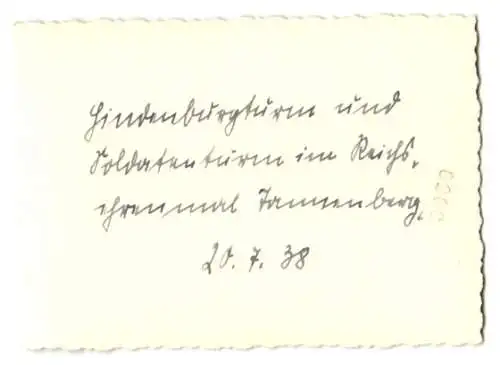 Hindenburgturm und
Soldatenturm im Reichs-
ehrenmal Tannenberg.
20. 7. 38